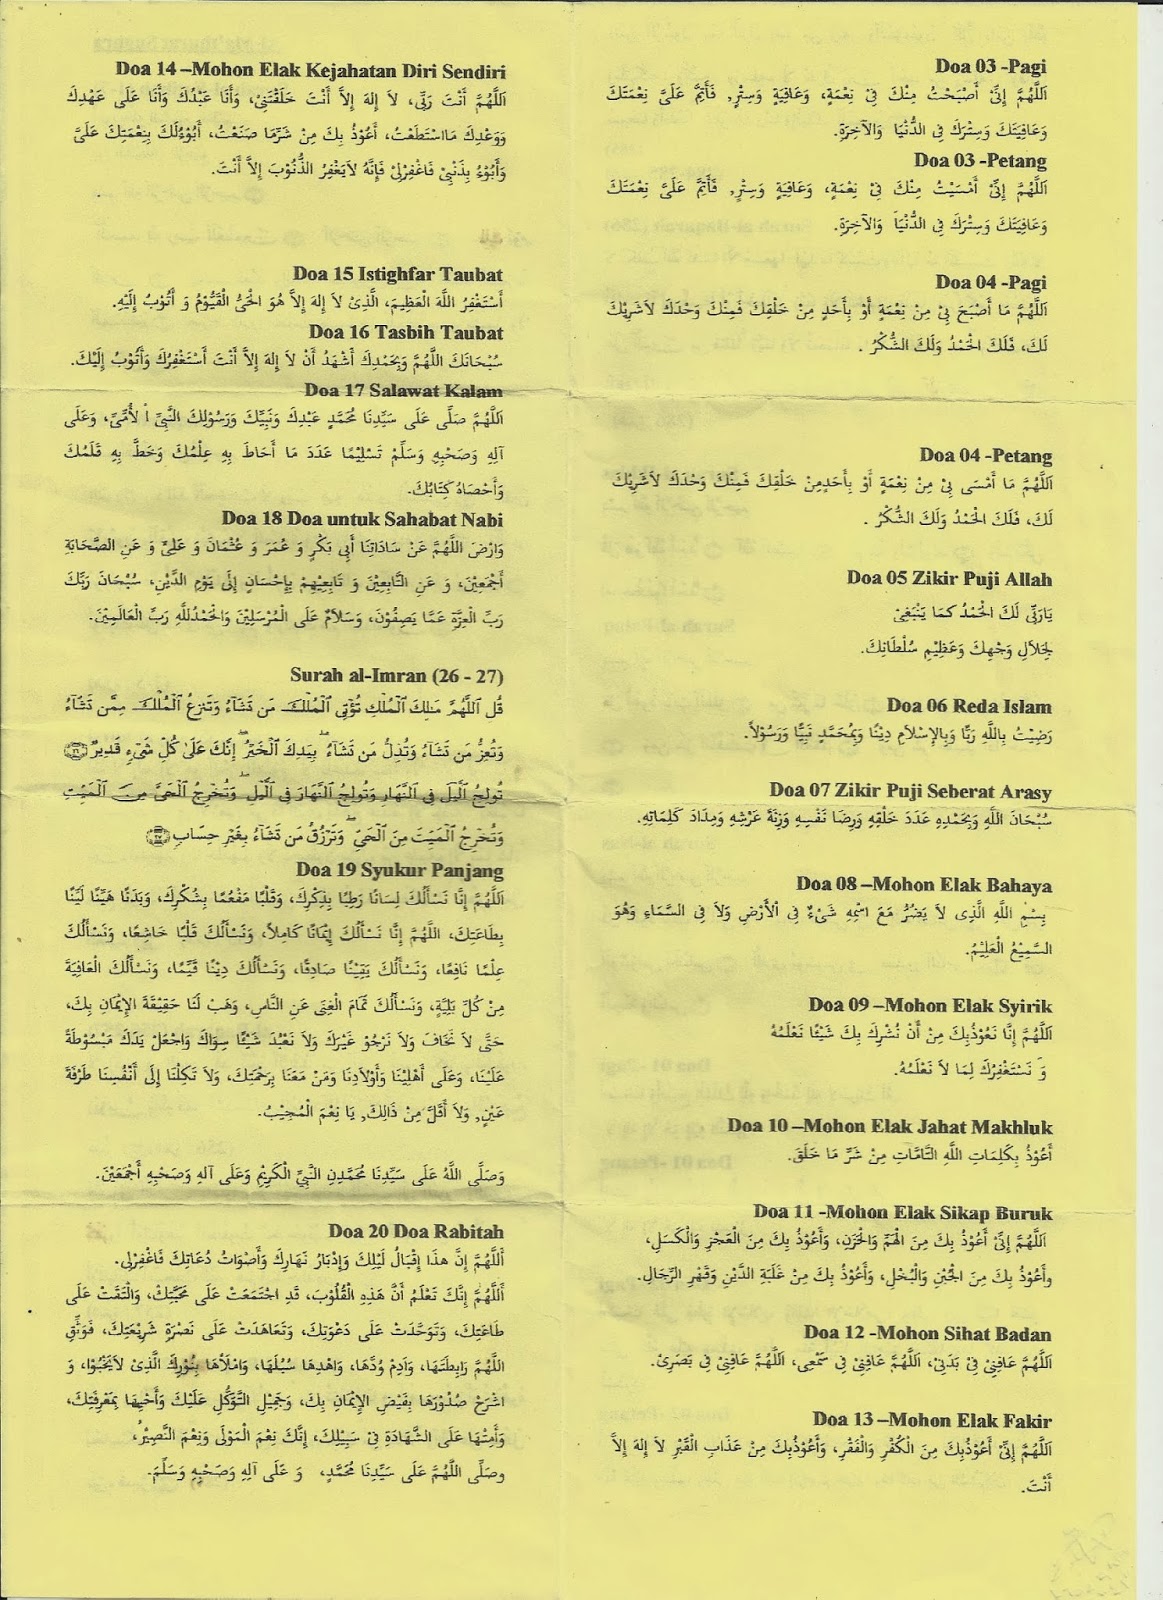 Doa 03 -Pagi
اَللَّهُمَّ إِنِّيْ أَصْبَحْتُ مِنْكَ فِيْ نِعْمَةٍ، وَعَافِيَةٍ وَسِتْرٍ, فَأَتِمَّ عَلَيَّ نِعْمَتَكَ
وَعَافِيَتَكَ وَسِتْرَكَ فِي الدُّنْيَا وَالآخِرَةِ.
Doa 03 -Petang
اَللَّهُمَّ إِنِّيْ أَمْسَيْتُ مِنْكَ فِيْ نِعْمَةٍ، وَعَافِيَةٍ وَسِتْرٍ, فَأَتِمَّ عَلَيَّ نِعْمَتَكَ
وَعَافِيَتَكَ وَسِتْرَكَ فِي الدُّنْيَا وَالآخِرَةِ.
Doa 04 -Pagi
اَللَّهُمَّ مَا أَصْبَحَ بِيْ مِنْ نِعْمَةٍ أَوْ بِأَحَدٍ مِنْ خَلْقِكَ فَمِنْكَ وَحْدَكَ لاَشَرِيْكَ
لَكَ، فَلَكَ الْحَمْدُ وَلَكَ الشُّكْرُ .
Doa 04 -Petang
اَللَّهُمَّ مَا أَمْسَى بِيْ مِنْ نِعْمَةٍ أَوْ بِأَحَدٍمِنْ خَلْقِكَ فَمِنْكَ وَحْدَكَ لاَشَرِيْكَ
لَكَ، فَلَكَ الْحَمْدُ وَلَكَ الشُّكْرُ .
Doa 05 Zikir Puji Allah
يَارَبِّي لَكَ الْحَمْدُ كَمَا يَنْبَغِيْ
لِجَلاَلِ وَجْهِكَ وَعَظِيْمِ سُلْطَانِكَ.
Doa 06 Reda Islam
رَضِيْتُ بِاللَّهِ رَبًّا وَبِالإِسْلاَمِ دِيْنًا وَبِمُحَمَّدٍ نَبِيًّا وَرَسُوْلاً.
Doa 07 Zikir Puji Seberat Arasy
سُبْحَانَ اللَّهِ وَبِحَمْدِهِ عَدَدَ خَلْقِهِ وَرِضَا نَفْسِهِ وَزِنَةَ عَرْشِهِ وَمِدَادَ كَلِمَاتِهِ.
Doa 08 –Mohon Elak Bahaya
بِسْمِ اللَّهِ الَّذِى لاَ يَضُرُّ مَعَ اسْمِهِ شَىْءٌ فِى اْلأَرْضِ وَلاَ فِى السَّمَاءِ وَهُوَ
السَّمِيْعُ الْعَلِيْمُ.
Doa 09 –Mohon Elak Syirik
اَللَّهُمَّ إِنَّا نَعُوْذُبِكَ مِنْ أَنْ نُشْرِكَ بِكَ شَيْئًا نَعْلَمُهُ
وَ نَسْتَغْفِرُكَ لِمَا لاَ نَعْلَمُهُ.
Doa 10 –Mohon Elak Jahat Makhluk
أَعُوْذُ بِكَلِمَاتِ اللَّهِ التَّامَّاتِ مِنْ شَرِّ مَا خَلَقَ.
Doa 11 -Mohon Elak Sikap Buruk
اَللَّهُمَّ إِنِّيْ أَعُوْذُ بِكَ مِنَ الْهَمِّ وَالْحَزَنِ، وَأَعُوْذُ بِكَ مِنَ الْعَجْزِ وَالْكَسَلِ،
وأَعُوْذُ بِكَ مِنَ الْجُبْنِ وَالْبُخْلِ، وَأَعُوْذُ بِكَ مِنْ غَلَبَةِ الدَّيْنِ وَقَهْرِ الرِّجَالِ.
Doa 12 -Mohon Sihat Badan
اَللَّهُمَّ عَافِنِيْ فِيْ بَدَنِيْ، اَللَّهُمَّ عَافِنِيْ فِيْ سَمْعِى، اَللَّهُمَّ عَافِنِيْ فِيْ بَصَرِىْ.
Doa 13 –Mohon Elak Fakir
اَللَّهُمَّ إِنِّيْ أَعُوْذُبِكَ مِنَ الْكُفْرِ وَالْفَقْرِ، وَأَعُوْذُبِكَ مِنْ عَذَابِ الْقَبْرِ لاَ إِلَهَ إِلاَّ
أَنْتَ.
Doa 14 –Mohon Elak Kejahatan Diri Sendiri
اَللَّهُمَّ أَنْتَ رَبِّى، لاَ إِلَهَ إِلاَّ أَنْتَ خَلَقْتَنِيْ، وَأَنَا عَبْدُكَ وَأَنَا عَلَى عَهْدِكَ
وَوَعْدِكَ مَااسْتَطَعْتُ، أَعُوْذُ بِكَ مِنْ شَرِّمَا صَنَعْتُ، أَبُوْءُلَكَ بِنِعْمَتِكَ عَلَيَّ
وَأَبُوْءُ بِذَنْبِيْ فَاغْفِرْلِيْ فَإِنَّهُ لاَيَغْفِرُ الذُّنُوْبَ إِلاَّ أَنْتَ.
Doa 15 Istighfar Taubat
أَسْتَغْفِرُ اللَّهَ الْعَظِيمَ، الَّذِىْ لاَ إِلَهَ إِلاَّ هُوَ الْحَيُّ الْقَيُّوْمُ وَ أَتُوْبُ إِلَيْهِ.
Doa 16 Tasbih Taubat
سُبْحَانَكَ اللَّهُمَّ وَبِحَمْدِكَ أَشْهَدُ أَنْ لاَ إِلَهَ إِلاَّ أَنْتَ أَسْتَغْفِرُكَ وَأَتُوْبُ إِلَيْكَ.
Doa 17 Salawat Kalam
اَللَّهُمَّ صَلِّى عَلَى سَيِّدِنَا مُحَمَّدٍ عَبْدِكَ وَنَبِيِّكَ وَرَسُوْلِكَ النَّبِيِّ اْلأُمِّيِّ، وَعَلَى
آلِهِ وَصَحْبِهِ وَسَلِّمْ تَسْلِيْمًا عَدَدَ مَا أَحَاطَ بِهِ عِلْمُكَ وَخَطَّ بِهِ قَلَمُكَ
وَأَحْصَاهُ كِتَابُكَ.
Doa 18 Doa untuk Sahabat Nabi
وَارْضَ اللَّهُمَّ عَنْ سَادَاتِنَا أَبِي بَكْرٍ وَ عُمَرَ وَ عُثْمَانَ وَ عَلِيٍّ وَ عَنِ الصَّحَابَةِ
أَجْمَعِيْنَ، وَ عَنِ التَّابِعِيْنَ وَ تَابِعِيْهِمْ بِإِحْسَانٍ إِلَى يَوْمِ الدِّيْنِ، سُبْحَانَ رَبِّكَ
رَبِّ الْعِزَّةِ عَمَّا يَصِفُوْنَ، وَسَلاَمٌ عَلَى الْمُرْسَلِيْنَ وَالْحَمْدُلِلَّهِ رَبِّ الْعَالَمِيْنَ.
Surah al-Imran (26 - 27)
قُلِ ٱللَّهُمَّ مَٰلِكَ ٱلْمُلْكِ تُؤْتِى ٱلْمُلْكَ مَن تَشَآءُ وَتَنزِعُ ٱلْمُلْكَ مِمَّن تَشَآءُ
وَتُعِزُّ مَن تَشَآءُ وَتُذِلُّ مَن تَشَآءُ ۖ بِيَدِكَ ٱلْخَيْرُ ۖ إِنَّكَ عَلَىٰ كُلِّ شَىْءٍ قَدِيرٌ ﴿٢٦﴾
تُولِجُ ٱلَّيْلَ فِى ٱلنَّهَارِ وَتُولِجُ ٱلنَّهَارَ فِى ٱلَّيْلِ ۖ وَتُخْرِجُ ٱلْحَىَّ مِنَ ٱلْمَيِّتِ
وَتُخْرِجُ ٱلْمَيِّتَ مِنَ ٱلْحَىِّ ۖ وَتَرْزُقُ مَن تَشَآءُ بِغَيْرِ حِسَابٍ ﴿٢٧﴾
Doa 19 Syukur Panjang
اَللَّهُمَّ إِنَّا نَسْأَلُكَ لِسَانًا رَطِبًا بِذِكْرِكَ، وَقَلْبًا مَفْعُمًا بِشُكْرِكَ، وَبَدَنًا هَيِّنًا لَيِّنًا
بِطَاعَتِكَ، اَللَّهُمَّ إِنَّا نَسْأَلُكَ إِيْمَانًا كَامِلاً، وَنَسْأَلُكَ قَلْبًا خَاشِعًا، وَنَسْأَلُكَ
عِلْمًا نَافِعًا، وَنَسْأَلُكَ يَقِيْنًا صَادِقًا، وَنَسْأَلُكَ دِيْنًا قَيِّمًا، وَنَسْأَلُكَ الْعَافِيَةَ
مِنْ كُلِّ بَلِيَّةٍ، وَنَسْأَلُكَ تَمَامَ الْغِنَى عَنِ النَّاسِ، وَهَبْ لَنَا حَقِيْقَةَ الإِيْمَانِ بِكَ،
حَتَّى لاَ نَخَافَ وَلاَ نَرْجُوْ غَيْرَكَ وَلاَ نَعْبُدَ شَيْئًا سِوَاكَ وَاجْعَلْ يَدَكَ مَبْسُوْطَةً
عَلَيْنَا، وَعَلَى أَهْلِيْنَا وَأَوْلاَدِنَا وَمَنْ مَعَنَا بِرَحْمَتِكَ، وَلاَ تَكِلْنَا إِلَى أَنْفُسِنَا طَرْفَةَ
عَيْنٍ, وَلاَ أَقَلَّ مِنْ ذَالِكَ, يَا نِعْمَ الْمُجِيْبُ.
وَصَلَّى اللَّهُ عَلَى سَيِّدِنَا مُحَمَّدِنِ النَّبِيِّ الْكَرِيْمِ وَعَلَى آلِهِ وَصَحْبِهِ أَجْمَعَيْنَ.
Doa 20 Doa Rabitah
اَللَّهُمَّ إِنَّ هذَا إِقْبَالُ لَيْلِكَ وَإِدْبَارُ نَهَارِكَ وَأَصْوَاتُ دُعَاتِكَ فَاغْفِرْلِى.
أَللَّهُمَّ إِنَّكَ تَعْلَمُ أَنَّ هَذِهِ الْقُلُوْبَ، قَدِ اجْتَمَعَتْ عَلَى مَحَبَّتِكَ، وَالْتَقَتْ عَلَى
طَاعَتِكَ، وَتَوَحَّدَتْ عَلَى دَعْوَتِكَ، وَتَعَاهَدَتْ عَلَى نَصْرَةِ شَرِيْعَتِكَ، فَوَثِّقِ
اللَّهُمَّ رَابِطَتَهَا، وَادِمْ وُدَّهَا، وَاهْدِهَا سُبُلَهَا، وَامْلَأْهَا بِنُوْرِكَ الَّذِىْ لاَيَخْبُوْا، وَ
اشْرَحْ صُدُوْرَهَا بِفَيْضِ الإِيْمَانِ بِكَ، وَجَمِيْلِ التَّوَكُّلِ عَلَيْكَ وَأَحْيِهَا بِمَعْرِفَتِكَ،
وَأَمِتْهَا عَلَى الشَّهَادَةِ فِيْ سَبِيْلِكَ، إِنَّكَ نِعْمَ الْمَوْلَى وَنِعْمَ النَّصِيْرُ،
وصَلِّى اللَّهُمَّ عَلَى سَيِّدِنَا مُحَمَّدٍ، وَ عَلَى آلِهِ وَصَحْبِهِ وَسَلِّمْ.